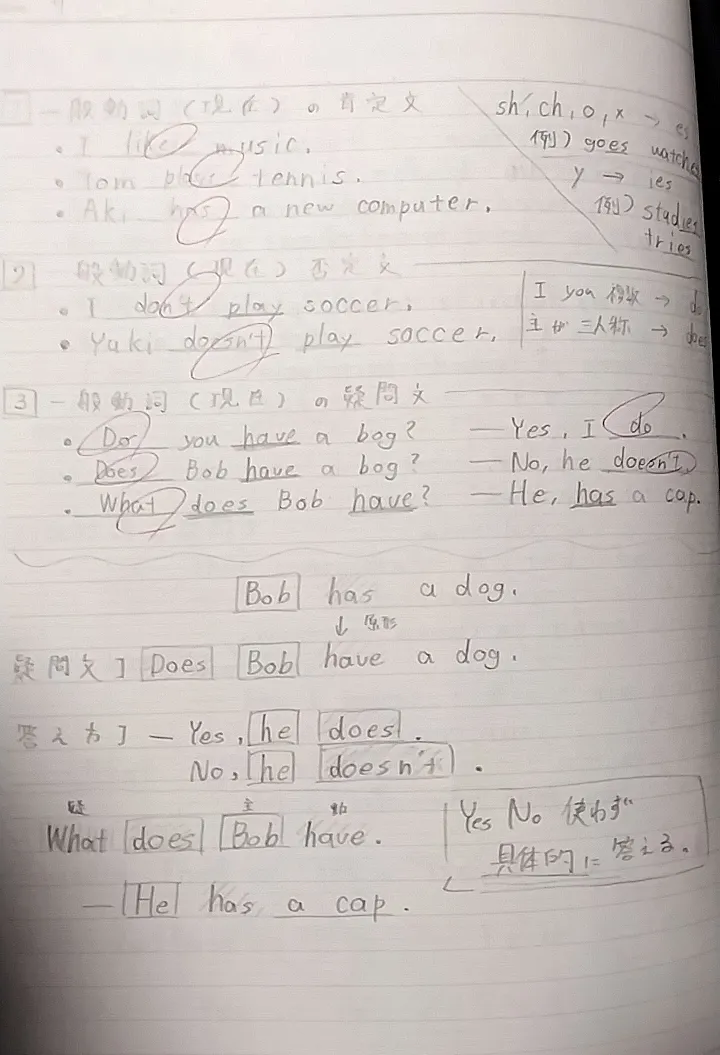 1 一般動詞(現在)の肯定文
・I like music.
・Tom plays tennis.
・Aki has a new computer.
sh, ch, o, x → es
例) goes watches
y → ies
例) studies
tries
2 一般動詞(現在)否定文
・I don't play soccer.
・Yuki doesn't play soccer.
I you 複数 → do
主が三人称 → does
3 一般動詞(現在)の疑問文
・Do you have a bog? —Yes, I do.
・Does Bob have a bog? —No, he doesn't.
・What does Bob have? —He, has a cap.
Bob has a dog.
↓ 原形
疑問文] Does Bob have a dog.
答え方] — Yes, he does.
No, he doesn't.
疑 主 動
What does Bob have.
— He has a cap.
Yes No 使わず
具体的に答える。